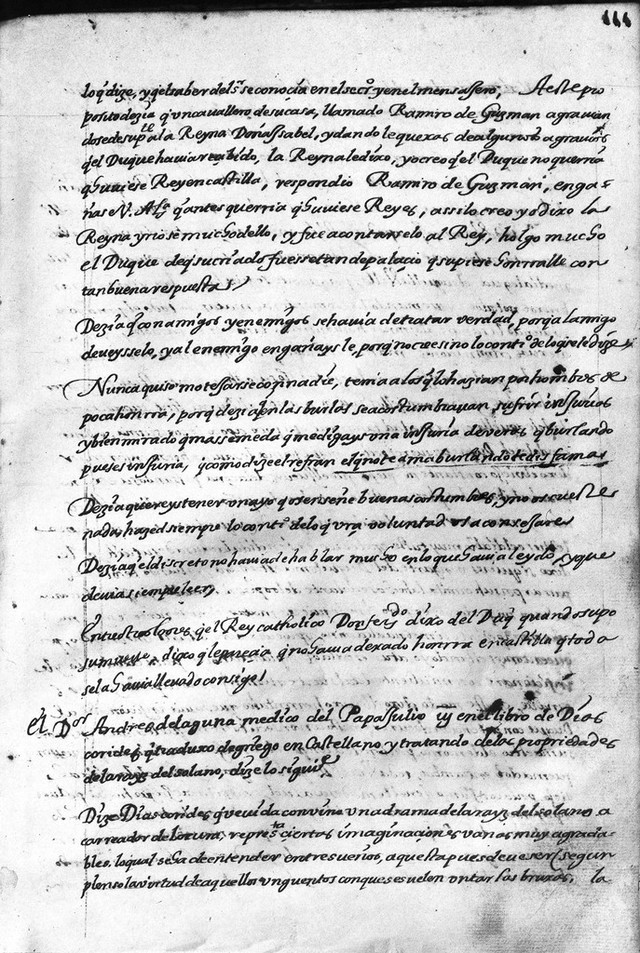 111
lo q̃ dize, y q̃ el saber del sr se conocia en el secro y en el mensajero, A este pro
posito dezia q̃ un cavallero de su casa, llamado Ramiro de Guzman agravian
dose de su pte a la Reyna Doña Isabel, y dando le quexas de algunos agravios
q̃ el Duque havia recebido, la Reyna le dixo, yo creo q̃ el Duque no querria
q̃ huviese Rey en castilla, respondio Ramiro de Guzman, enga=
ñase V. Alt. q̃ antes querria q̃ huviese Reyes, assi lo creo yo dixo la
Reyna y riose mucho dello, y fue a contarselo al Rey, holgo mucho
el Duque de q̃ su criado fuesse tan de palacio q̃ supiese honrralle con
tan buena respuesta /
Dezia q̃ con amigos y enemigos se havia de tratar verdad, porq̃ al amigo
deveysselo, y al enemigo engañaysle, porq̃ no cree sino lo conto de lo q̃ se le dize
Nunca quiso motejarse con nadie, tenia a los q̃ lo hazian por hombres de
poca honrra, porq̃ dezia q̃ en las burlas se acostumbravan sufrir injurias
y bien mirado q̃ mas se me da q̃ me digays una injuria de veras q̃ burlando
pues es injuria, y como dize el refran el q̃ no te ama burlando te disfama
Dezia quereys tener un ayo q̃ os enseñe buenas costumbres, y no os cueste
nada, hazed siempre lo conto de lo q̃ vra voluntad os aconsejare
Dezia q̃ el discreto no havia de hablar mucho en lo que havia leydo, y que
devia siempre leer
En tustros q̃ el Rey catholico Don ferdo dixo del Duq̃ quando supo
su muerte, dixo q̃ le parecia q̃ no havia dexado honrra en castilla q̃ toda
se la havia llevado consigo /
El Dor Andres de laguna medico del Papa Julio iij en el libro de Dios
corides q̃ traduxo de griego en Castellano y tratando de las propriedades
de la rayz del solano, dize lo siguite
Dize Dioscorides q̃ bevida con vino una drama de la rayz del solano a
carreador de locura, represta ciertas imaginaciones vanas muy agrada=
bles, lo qual se ha de entender entre sueños, aquesta pues deve ser (segun
pienso) la virtud de aquellos unguentos con que se suelen untar las bruxas, la